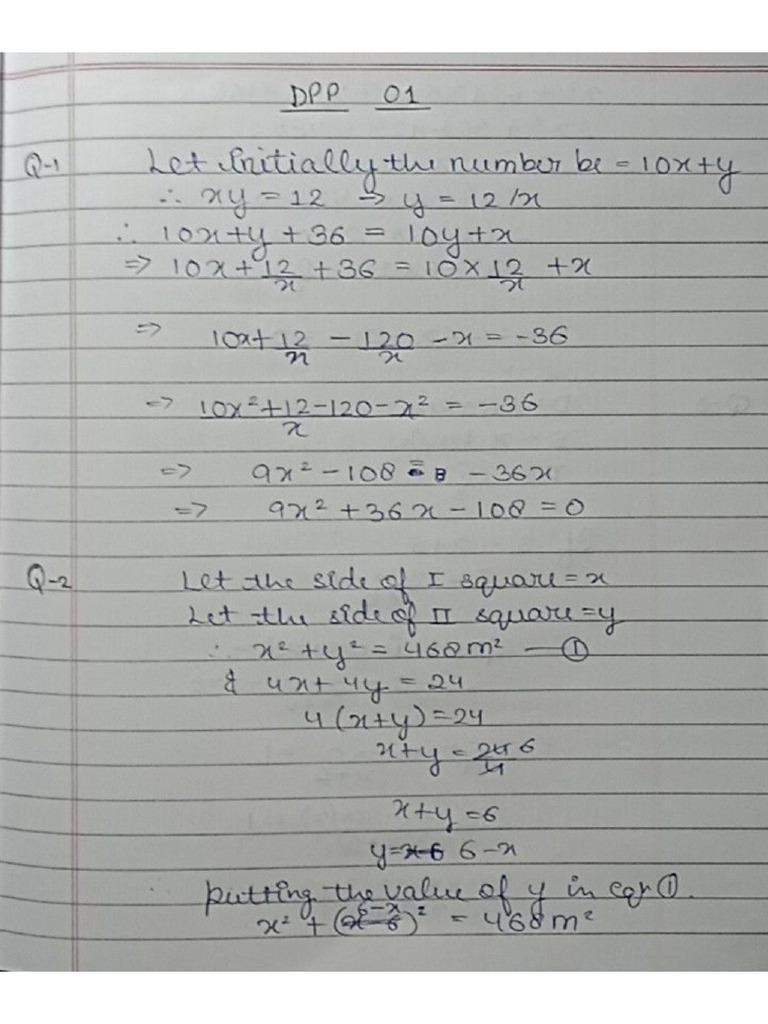 DPP 01
Q-1 Let Initially the number be = 10x+y
∴ xy = 12 → y = 12/x
∴ 10x+y+36 = 10y+x
=> 10x + 12/x + 36 = 10 × 12/x + x
=> 10x + 12/x - 120/x - x = -36
=> 10x²+12-120-x²/x = -36
=> 9x² - 108 = -36x
=> 9x² + 36x - 108 = 0
Q-2 Let the side of I square = x
Let the side of II square = y
∴ x² + y² = 468m² — ①
& 4x + 4y = 24
4(x+y) = 24
x+y = 24/4 6
x+y = 6
y = 6-x
putting the value of y in eqn ①.
x² + (6-x)² = 468m²